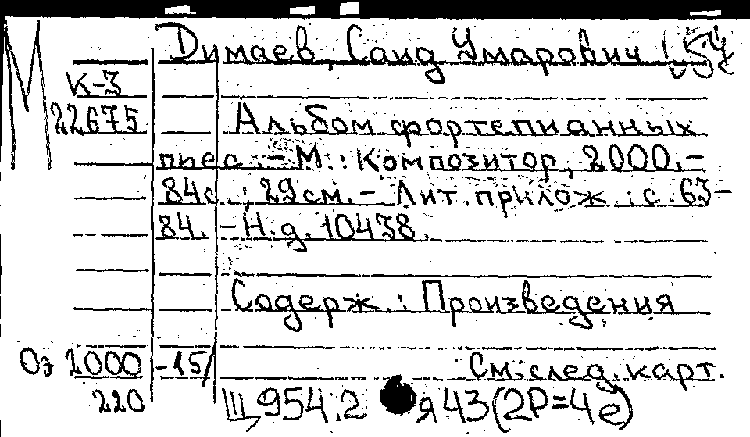 М
Димаев, Саид Умарович
К-3
22675
Альбом фортепианных
пьес. - М.: Композитор, 2000. -
84с.; 29см. - Лит. прилож.: с. 63-
84. - Н.д. 10438.
Содерж.: Произведения
Оэ 2000 -15/ См. след. карт.
220 Щ954.2 я43(2Р=4е)